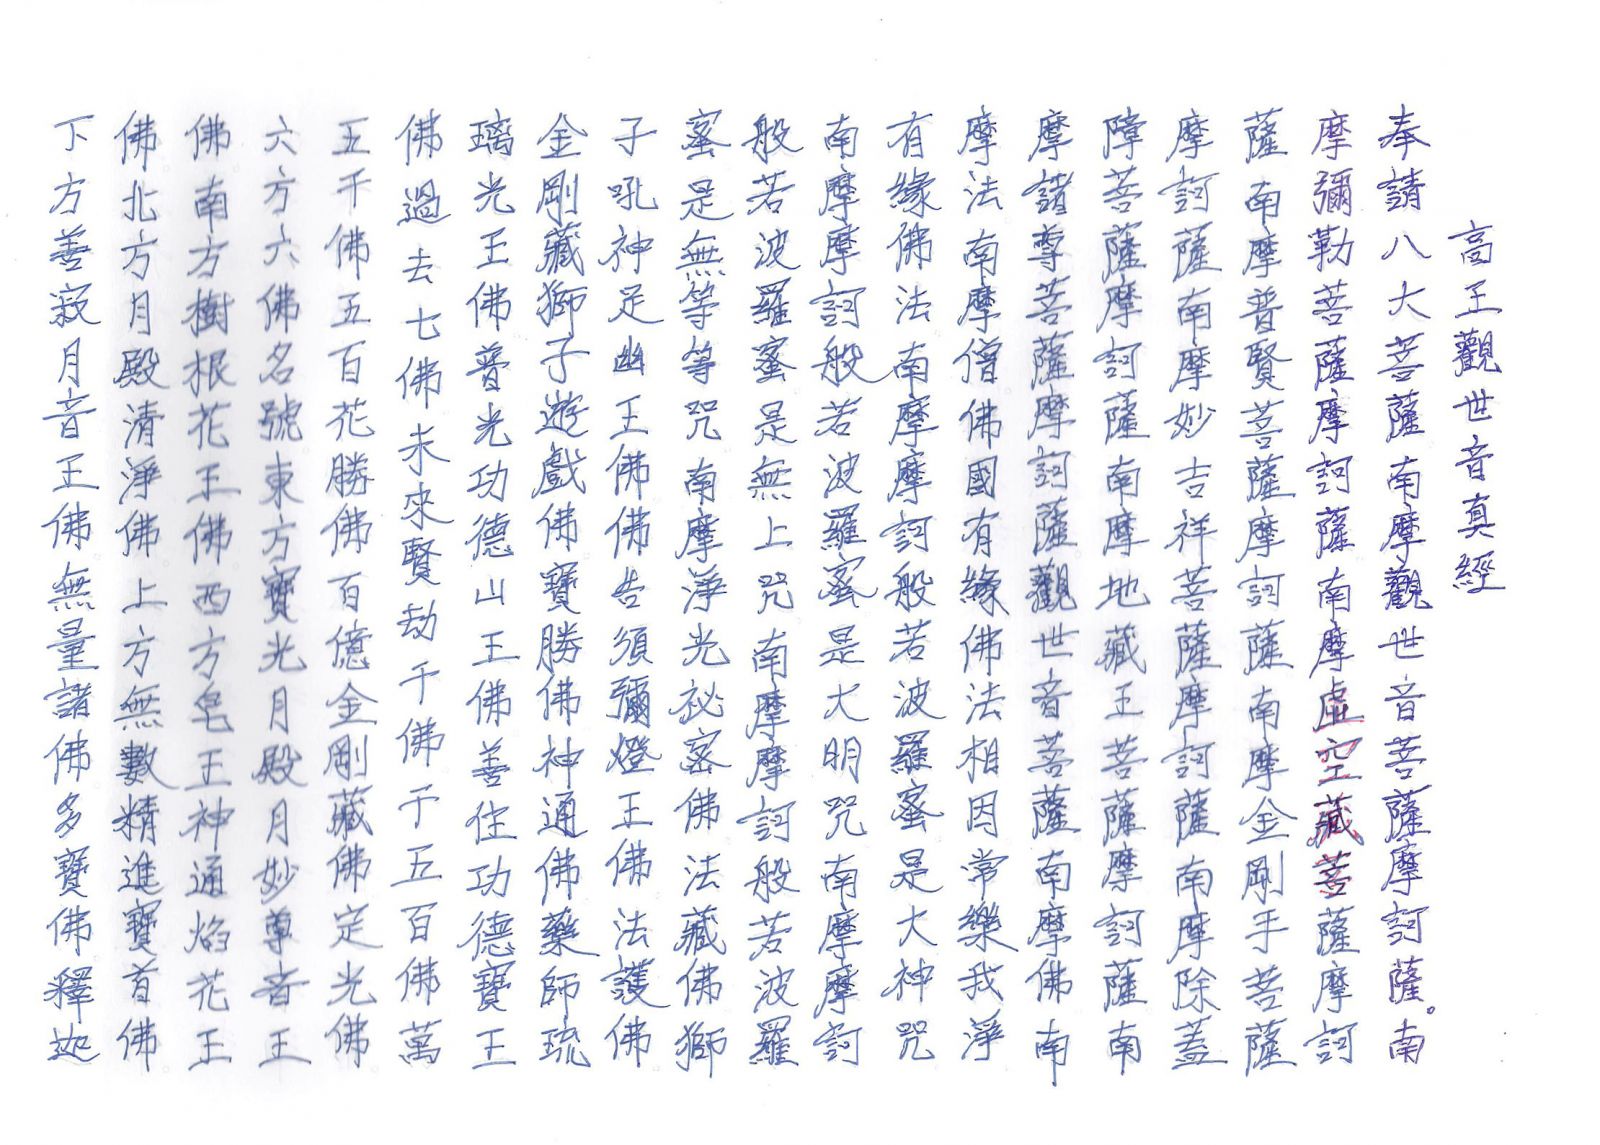 高王觀世音真經
奉請八大菩薩南摩觀世音菩薩摩訶薩。南
摩彌勒菩薩摩訶薩南摩虛空藏菩薩摩訶
薩南摩普賢菩薩摩訶薩南摩金剛手菩薩
摩訶薩南摩妙吉祥菩薩摩訶薩南摩除蓋
障菩薩摩訶薩南摩地藏王菩薩摩訶薩南
摩諸尊菩薩摩訶薩觀世音菩薩南摩佛南
摩法南摩僧佛國有緣佛法相因常樂我淨
有緣佛法南摩摩訶般若波羅蜜是大神咒
南摩摩訶般若波羅蜜是大明咒南摩摩訶
般若波羅蜜是無上咒南摩摩訶般若波羅
蜜是無等等咒南摩淨光祕密佛法藏佛獅
子吼神足幽王佛佛告須彌燈王佛法護佛
金剛藏獅子遊戲佛寶勝佛神通佛藥師琉
璃光王佛普光功德山王佛善住功德寶王
佛過去七佛未來賢劫千佛千五百佛萬
五千佛五百花勝佛百億金剛藏佛定光佛
六方六佛名號東方寶光月殿月妙尊音王
佛南方樹根花王佛西方皂王神通焰花王
佛北方月殿清淨佛上方無數精進寶首佛
下方善寂月音王佛無量諸佛多寶佛釋迦